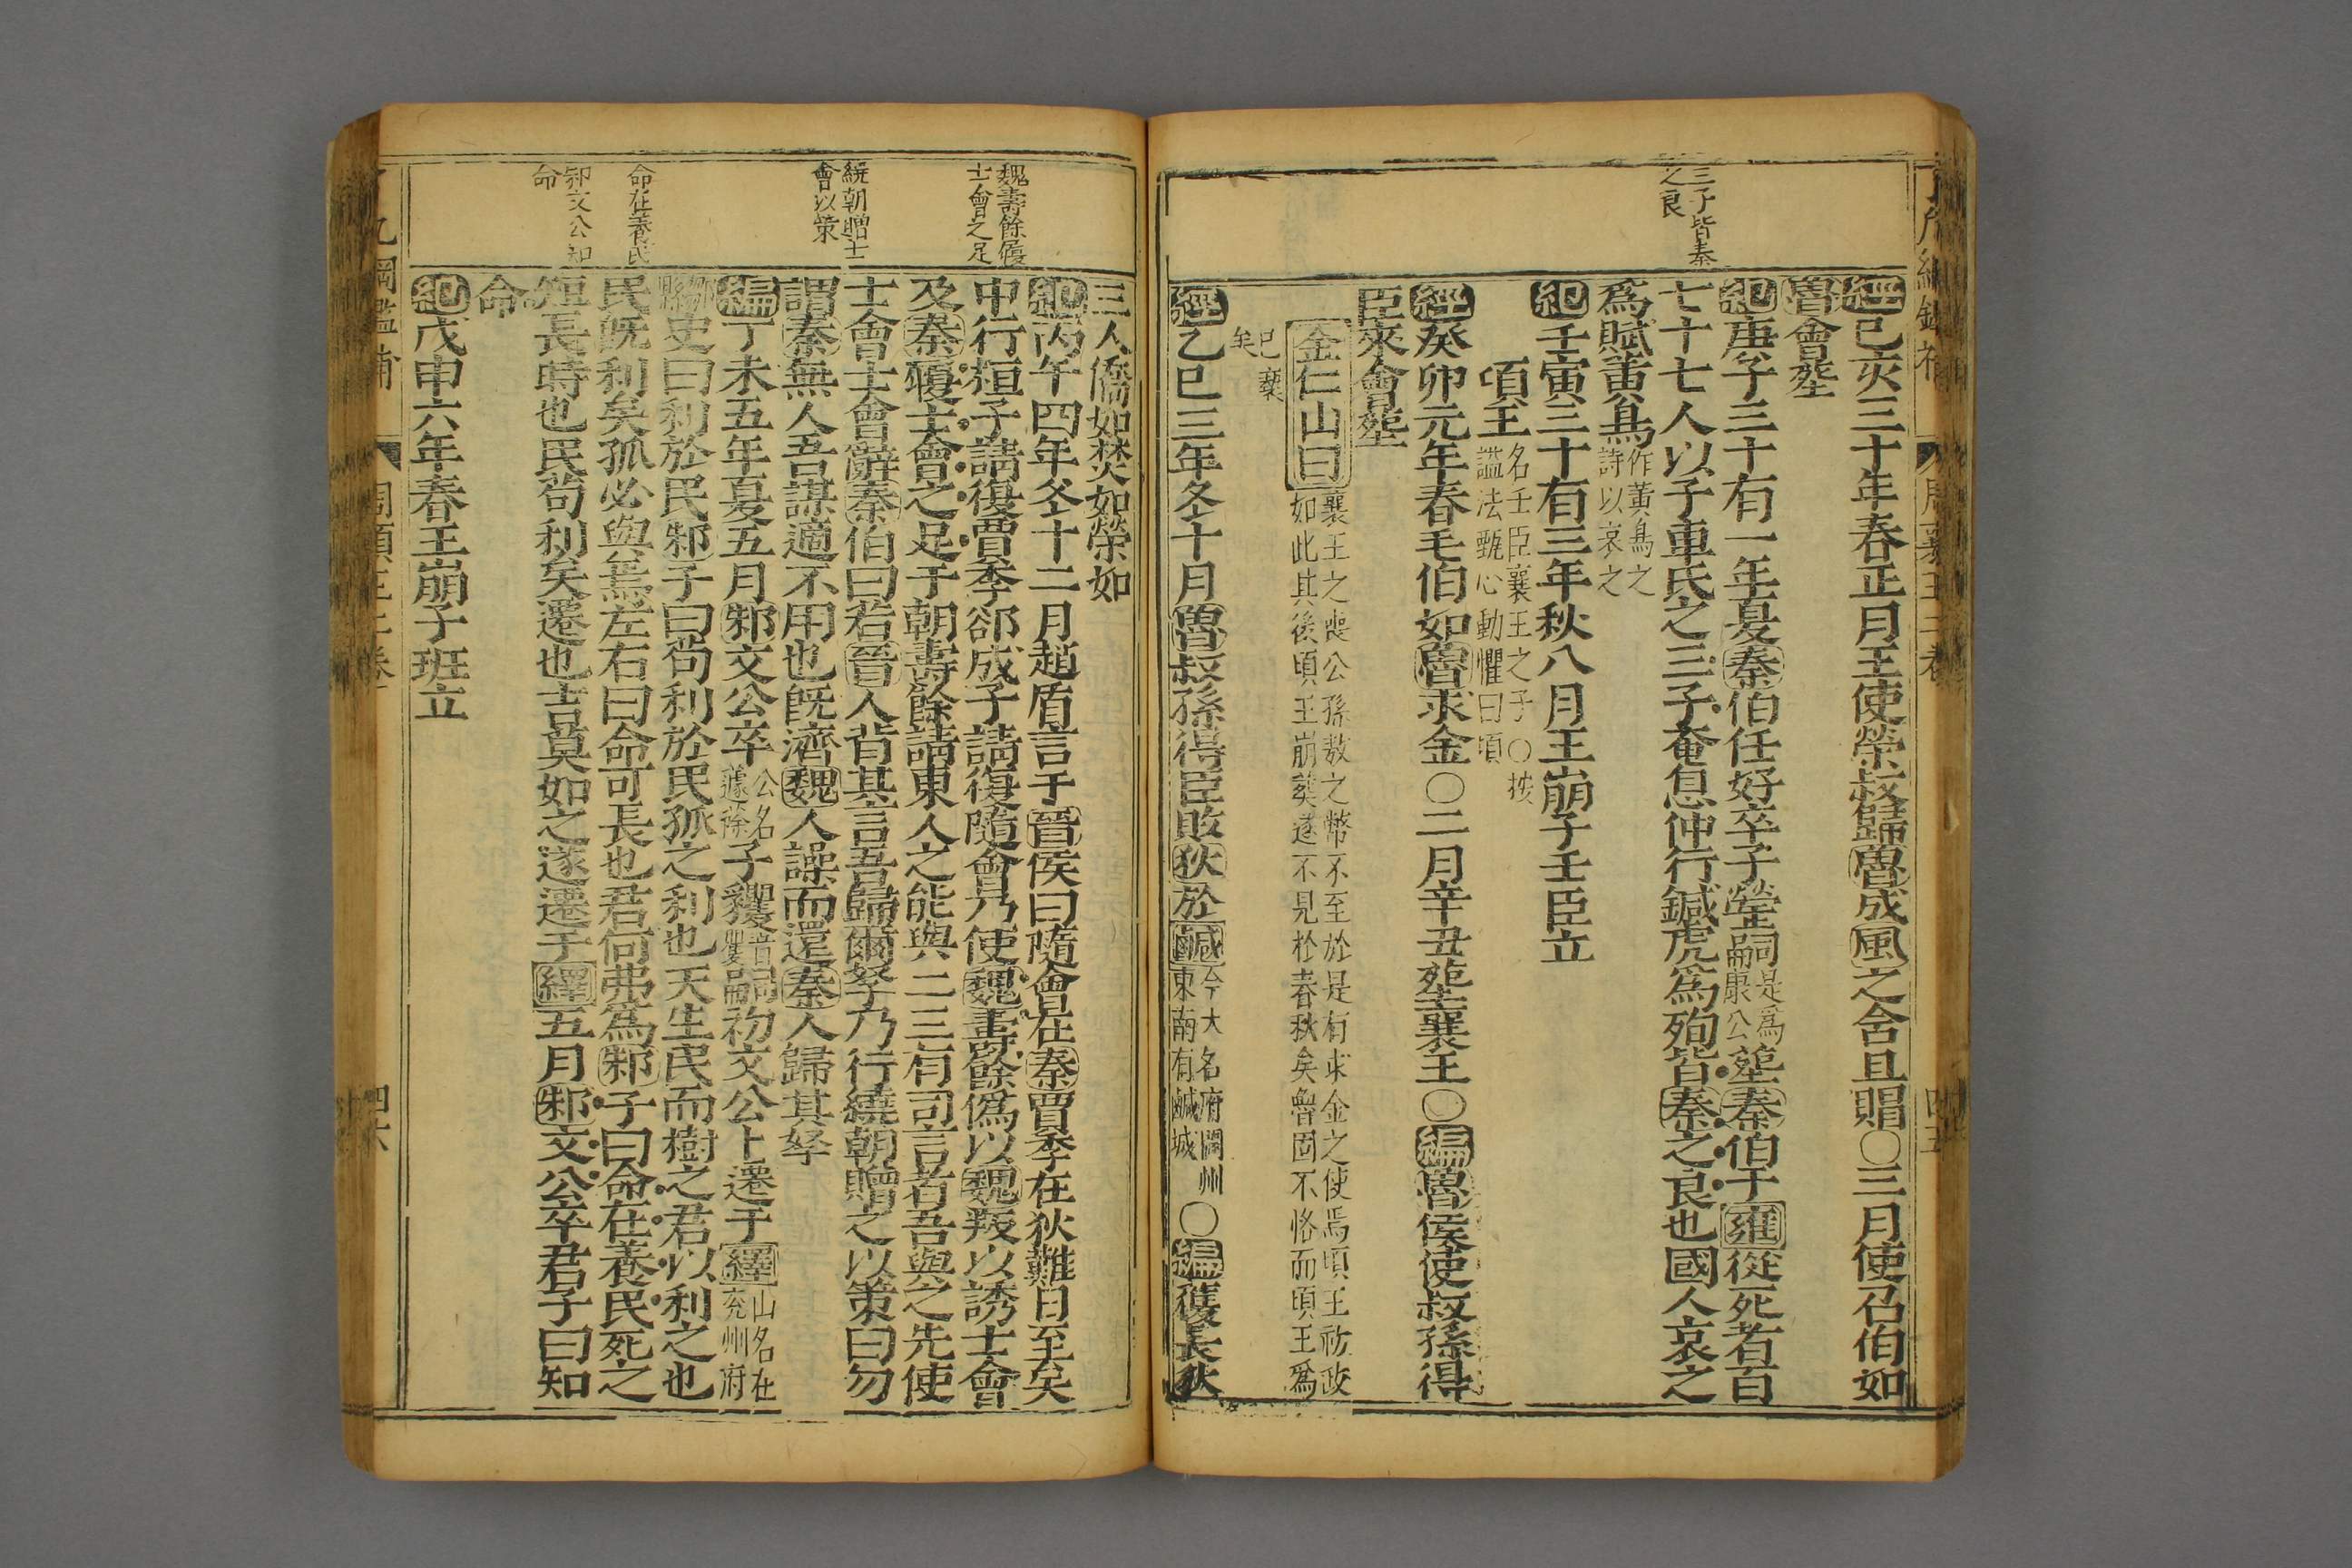 三子皆秦
之良
經己亥三十年春正月王使榮叔歸魯成風之含且賵○三月使召伯如
魯會葬
紀庚子三十有一年夏秦伯任好卒子罃嗣是爲康公葬秦伯于雍從死者百
七十七人以子車氏之三子奄息仲行鍼虎爲殉皆秦之良也國人哀之
爲賦黃鳥作黃鳥之詩以哀之
紀壬寅三十有三年秋八月王崩子壬臣立
頃王名壬臣襄王之子○按謚法甄心動懼曰頃
經癸卯元年春毛伯如魯求金○二月辛丑葬襄王○編魯侯使叔孫得
臣來會葬
金仁山曰襄王之喪公孫敖之幣不至於是有求金之使焉頃王初政
如此其後頃王崩葬遂不見於春秋矣魯固不恪而頃王爲
已褻
矣
經乙巳三年冬十月魯叔孫得臣敗狄於鹹今大名府開州東南有鹹城○編獲長狄
魏壽餘履
士會之足
繞朝贈士
會以策
命在養民
邾文公知
命
三人僑如焚如榮如
紀丙午四年冬十二月趙盾言于晉侯曰隨會在秦賈季在狄難日至矣
中行桓子請復賈季郤成子請復隨會乃使魏壽餘僞以魏叛以誘士會
及秦履士會之足于朝壽餘請東人之能與二三有司言者吾與之先使
士會士會辭秦伯曰若晉人背其言吾歸爾孥乃行繞朝贈之以策曰勿
謂秦無人吾謀適不用也旣濟魏人譟而還秦人歸其孥
編丁未五年夏五月邾文公卒公名蘧蒢子貜音矍嗣初文公卜遷于繹山名在兗州府
鄒縣史曰利於民邾子曰苟利於民孤之利也天生民而樹之君以利之也
民旣利矣孤必與焉左右曰命可長也君何弗爲邾子曰命在養民死之
短長時也民苟利矣遷也吉莫如之遂遷于繹五月邾文公卒君子曰知
命
紀戊申六年春王崩子班立
周頃王二卷
四六